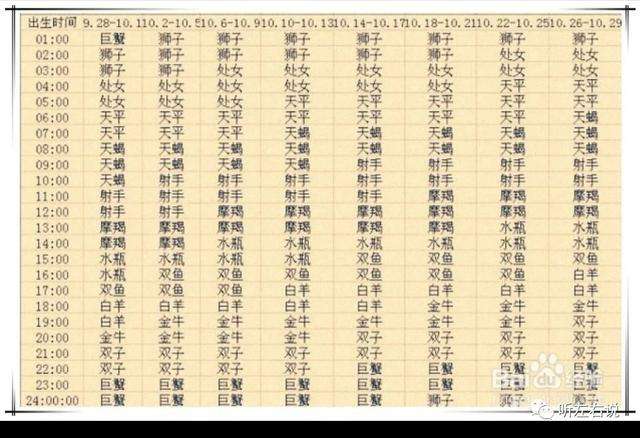 出生时间 9.28-10.1 10.2-10.5 10.6-10.9 10.10-10.13 10.14-10.17 10.18-10.21 10.22-10.25 10.26-10.29
01:00 巨蟹 狮子 狮子 狮子 狮子 狮子 狮子 狮子
02:00 狮子 狮子 狮子 狮子 狮子 狮子 处女 处女
03:00 狮子 狮子 处女 处女 处女 处女 处女 处女
04:00 处女 处女 处女 处女 处女 处女 天平 天平
05:00 处女 处女 处女 天平 天平 天平 天平 天平
06:00 天平 天平 天平 天平 天平 天平 天平 天蝎
07:00 天平 天平 天平 天蝎 天蝎 天蝎 天蝎 天蝎
08:00 天蝎 天蝎 天蝎 天蝎 天蝎 天蝎 天蝎 天蝎
09:00 天蝎 天蝎 天蝎 天蝎 射手 射手 射手 射手
10:00 天蝎 射手 射手 射手 射手 射手 射手 射手
11:00 射手 射手 射手 射手 射手 摩羯 摩羯 摩羯
12:00 射手 射手 摩羯 摩羯 摩羯 摩羯 摩羯 摩羯
13:00 摩羯 摩羯 摩羯 摩羯 摩羯 摩羯 水瓶 水瓶
14:00 摩羯 摩羯 水瓶 水瓶 水瓶 水瓶 水瓶 水瓶
15:00 水瓶 水瓶 水瓶 水瓶 双鱼 双鱼 双鱼 双鱼
16:00 水瓶 双鱼 双鱼 双鱼 双鱼 双鱼 双鱼 白羊
17:00 双鱼 双鱼 双鱼 白羊 白羊 白羊 白羊 白羊
18:00 白羊 白羊 白羊 白羊 白羊 金牛 金牛 金牛
19:00 白羊 金牛 金牛 金牛 金牛 金牛 金牛 双子
20:00 金牛 金牛 金牛 金牛 双子 双子 双子 双子
21:00 双子 双子 双子 双子 双子 双子 双子 双子
22:00 双子 双子 双子 双子 巨蟹 巨蟹 巨蟹 巨蟹
23:00 巨蟹 巨蟹 巨蟹 巨蟹 巨蟹 巨蟹 巨蟹 巨蟹
24:00:00 巨蟹 巨蟹 巨蟹 巨蟹 巨蟹 狮子 狮子 狮子
Bai 经验
听左右说